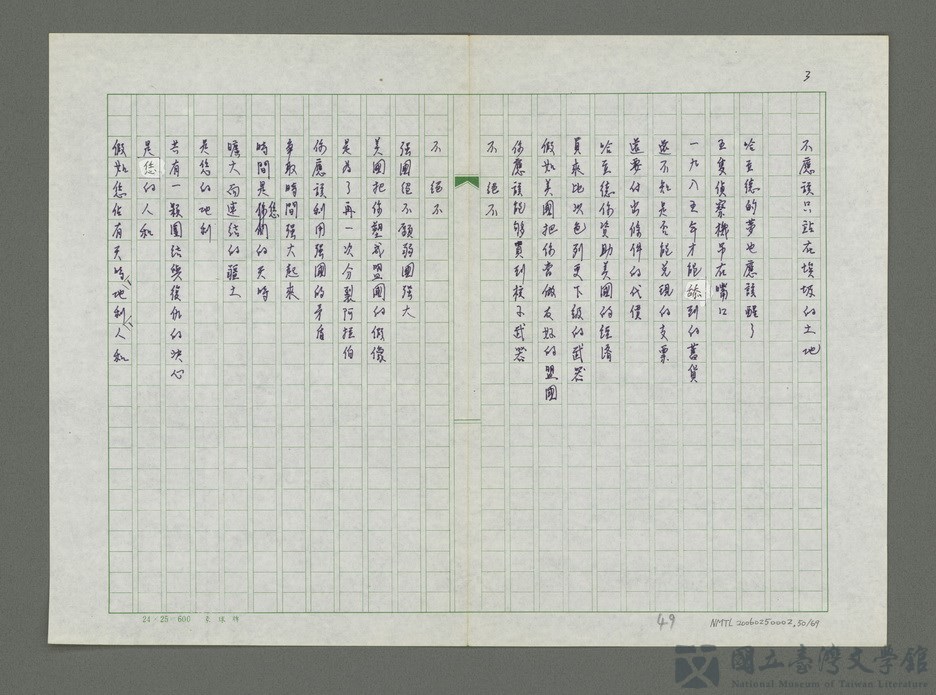 3
不應該只站在埃坂的土地
哈珊德的夢也應該醒了
五隻偵察機吊在嘴口
一九八五年才能舔到的舊貨
還不知是否能兌現的支票
還要付出條件的代價
哈珊德你資助美國的經濟
買來比以色列更下級的武器
假如美國把你當做友好的盟國
你應該能夠買到核子武器
不 絕不
不 絕不
強國絕不願弱國強大
美國把你塑成盟國的偶像
是為了再一次分裂阿拉伯
你應該利用強國的矛盾
爭取時間強大起來
時間是您們的天時
曠大而連結的疆土
是您的地利
共有一顆團結與復仇的決心
是您的人和
假如您佔有天時、地利、人和
24×25=600
49
NMTL 20060250002.50/69
國立臺灣文學館
National Museum of Taiwan Literature